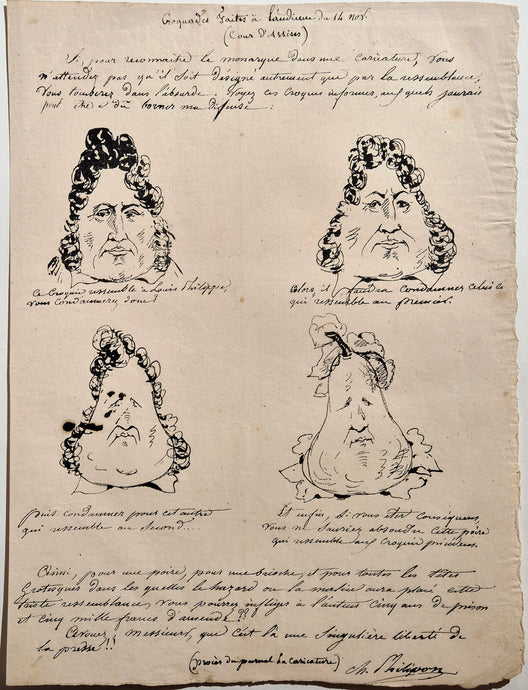 Croquades faites à l'audience du 14 nov.
(Cour d'Assises)
Si, pour reconnaître le monarque dans une caricature, vous
n'attendez pas qu'il soit désigné autrement que par la ressemblance,
vous tomberez dans l'absurde. Voyez ces croquis informes, auxquels j'aurais
peut être dû borner ma défense :
Ce croquis ressemble à Louis Philippe,
vous condamnerez donc ?
Alors il faudra condamner celui ci
qui ressemble au premier.
puis condamner pour cet autre
qui ressemble au second.
Et enfin, si vous êtes conséquens,
vous ne sauriez absoudre cette poire
qui ressemble aux croquis précédens.
Ainsi, pour une poire, pour une brioche, et pour toutes les têtes
grotesques dans les quelles le hazard ou la malice aura placé cette
triste ressemblance, vous pourrez infliger à l'auteur cinq ans de prison
et cinq mille francs d'amende ??
Avouez, messieurs, que c'est là une singulière liberté de
la presse !!
(procès du journal la caricature)
Ch. Philipon